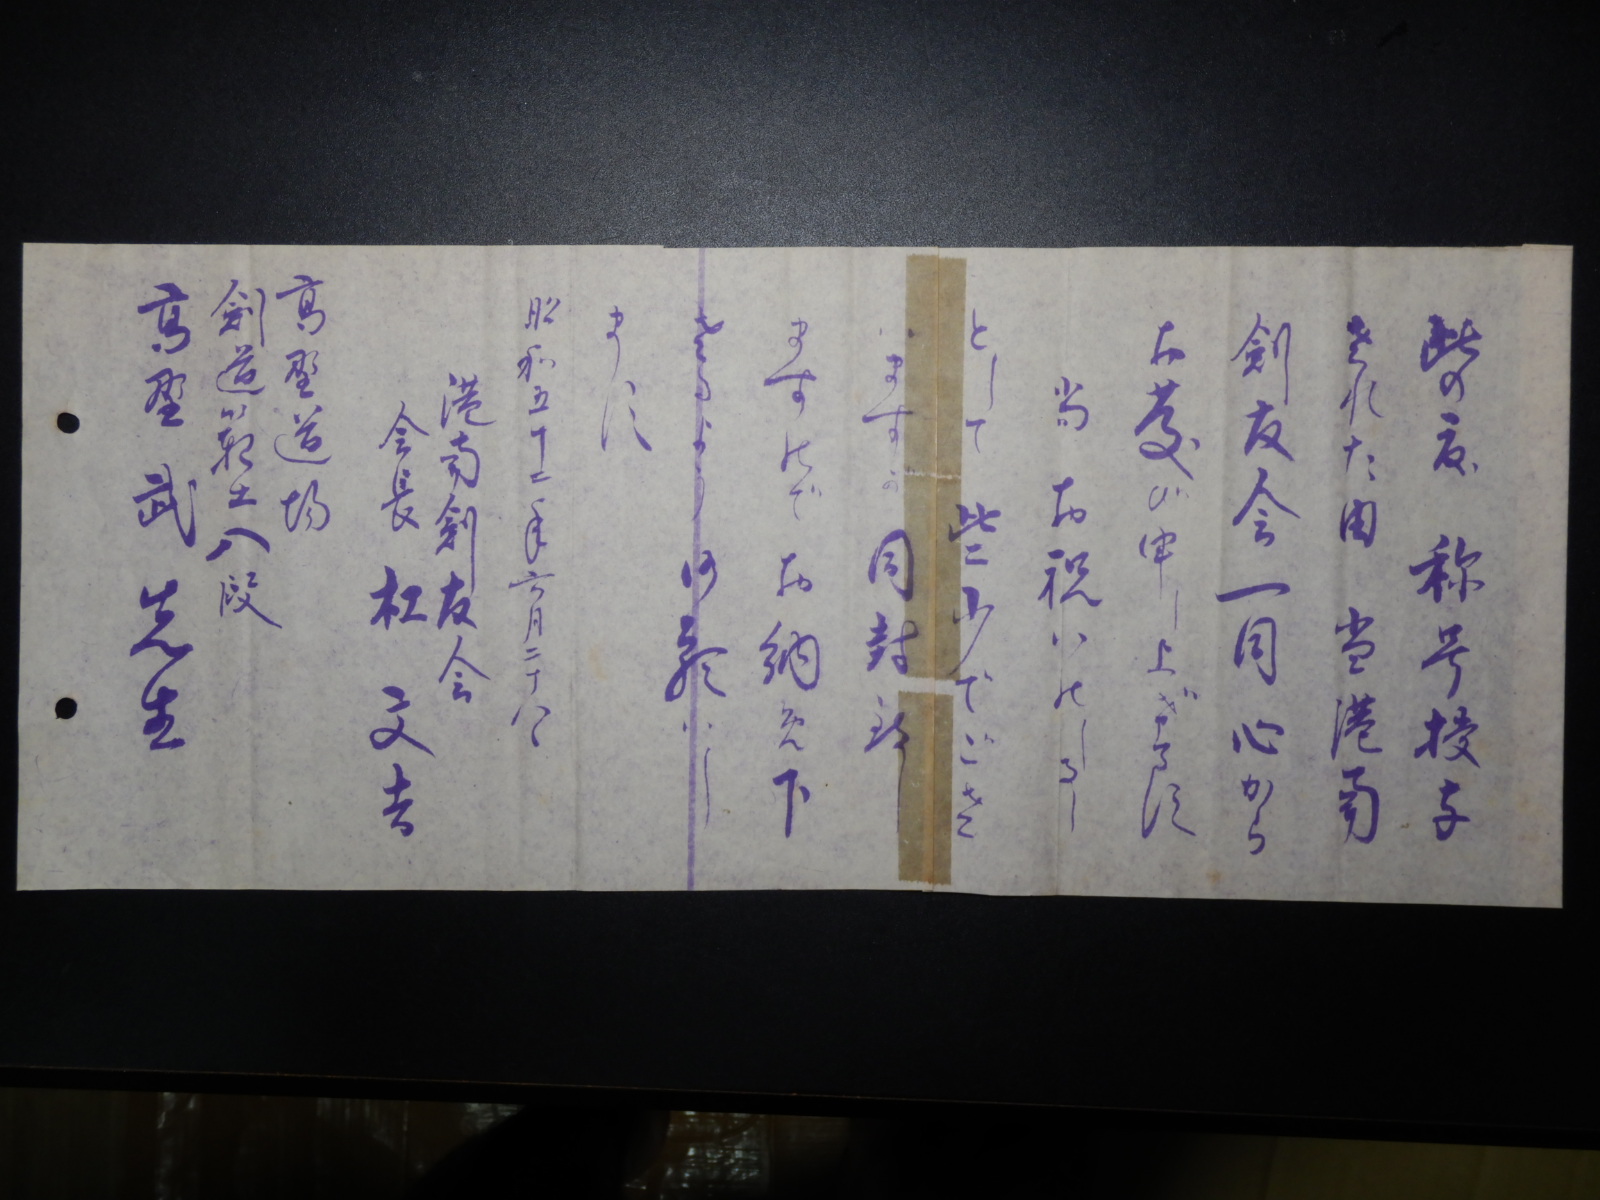 此の度 称号授与
された由 当港南
剣友会一同心から
お慶び申し上げます
尚 お祝いのしるし
として 些少でござ
いますが 同封致し
ますので お納め下
さるよう お願いし
ます
昭和五十一年六月二十八日
港南剣友会
会長 杜 文吉
高野道場
剣道範士八段
高野 武 先生